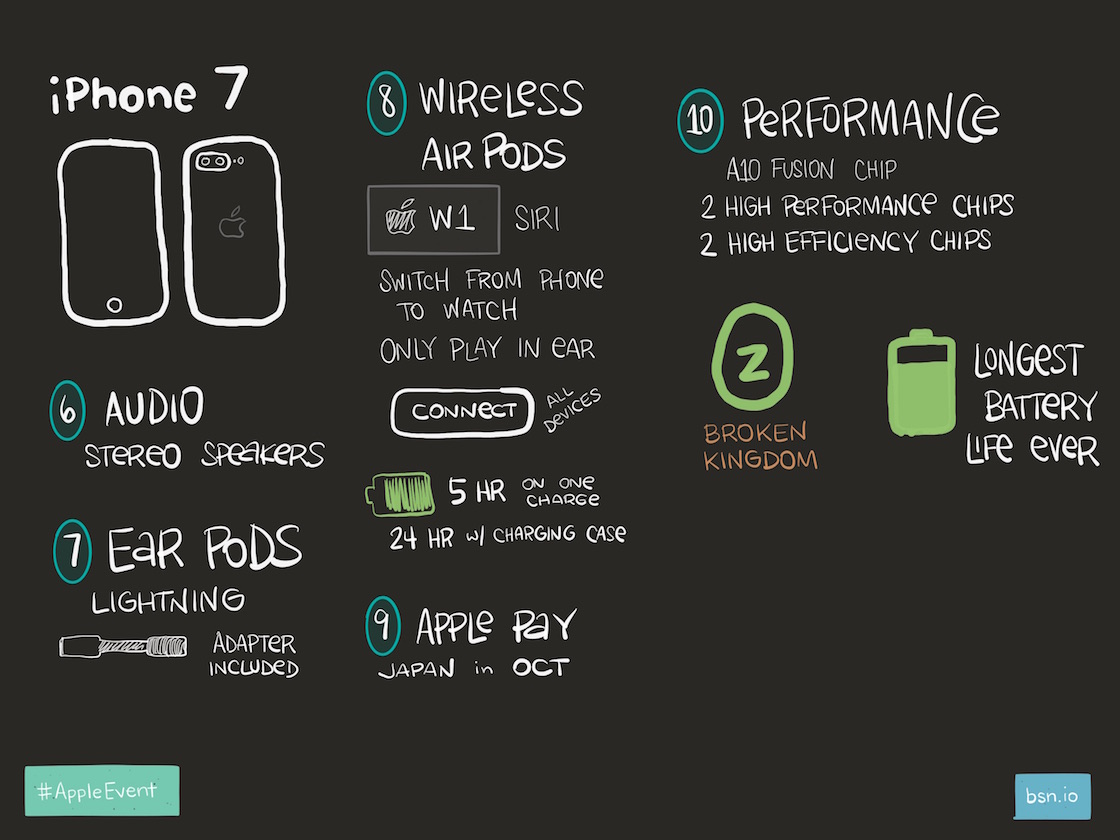 iPhone 7
6 AUDIO
STEREO SPEAKERS
7 EAR PODS
LIGHTNING
ADAPTER
INCLUDED
8 WIRELESS
AIR PODS
W1 SIRI
SWITCH FROM PHONE
TO WATCH
ONLY PLAY IN EAR
CONNECT
ALL
DEVICES
5 HR ON ONE
CHARGE
24 HR W/ CHARGING CASE
9 APPLE PAY
JAPAN in OCT
10 PERFORMANCE
A10 FUSION CHIP
2 HIGH PERFORMANCE CHIPS
2 HIGH EFFICIENCY CHIPS
Z
BROKEN
KINGDOM
LONGEST
BATTERY
LIFE EVER
#AppleEvent
bsn.io